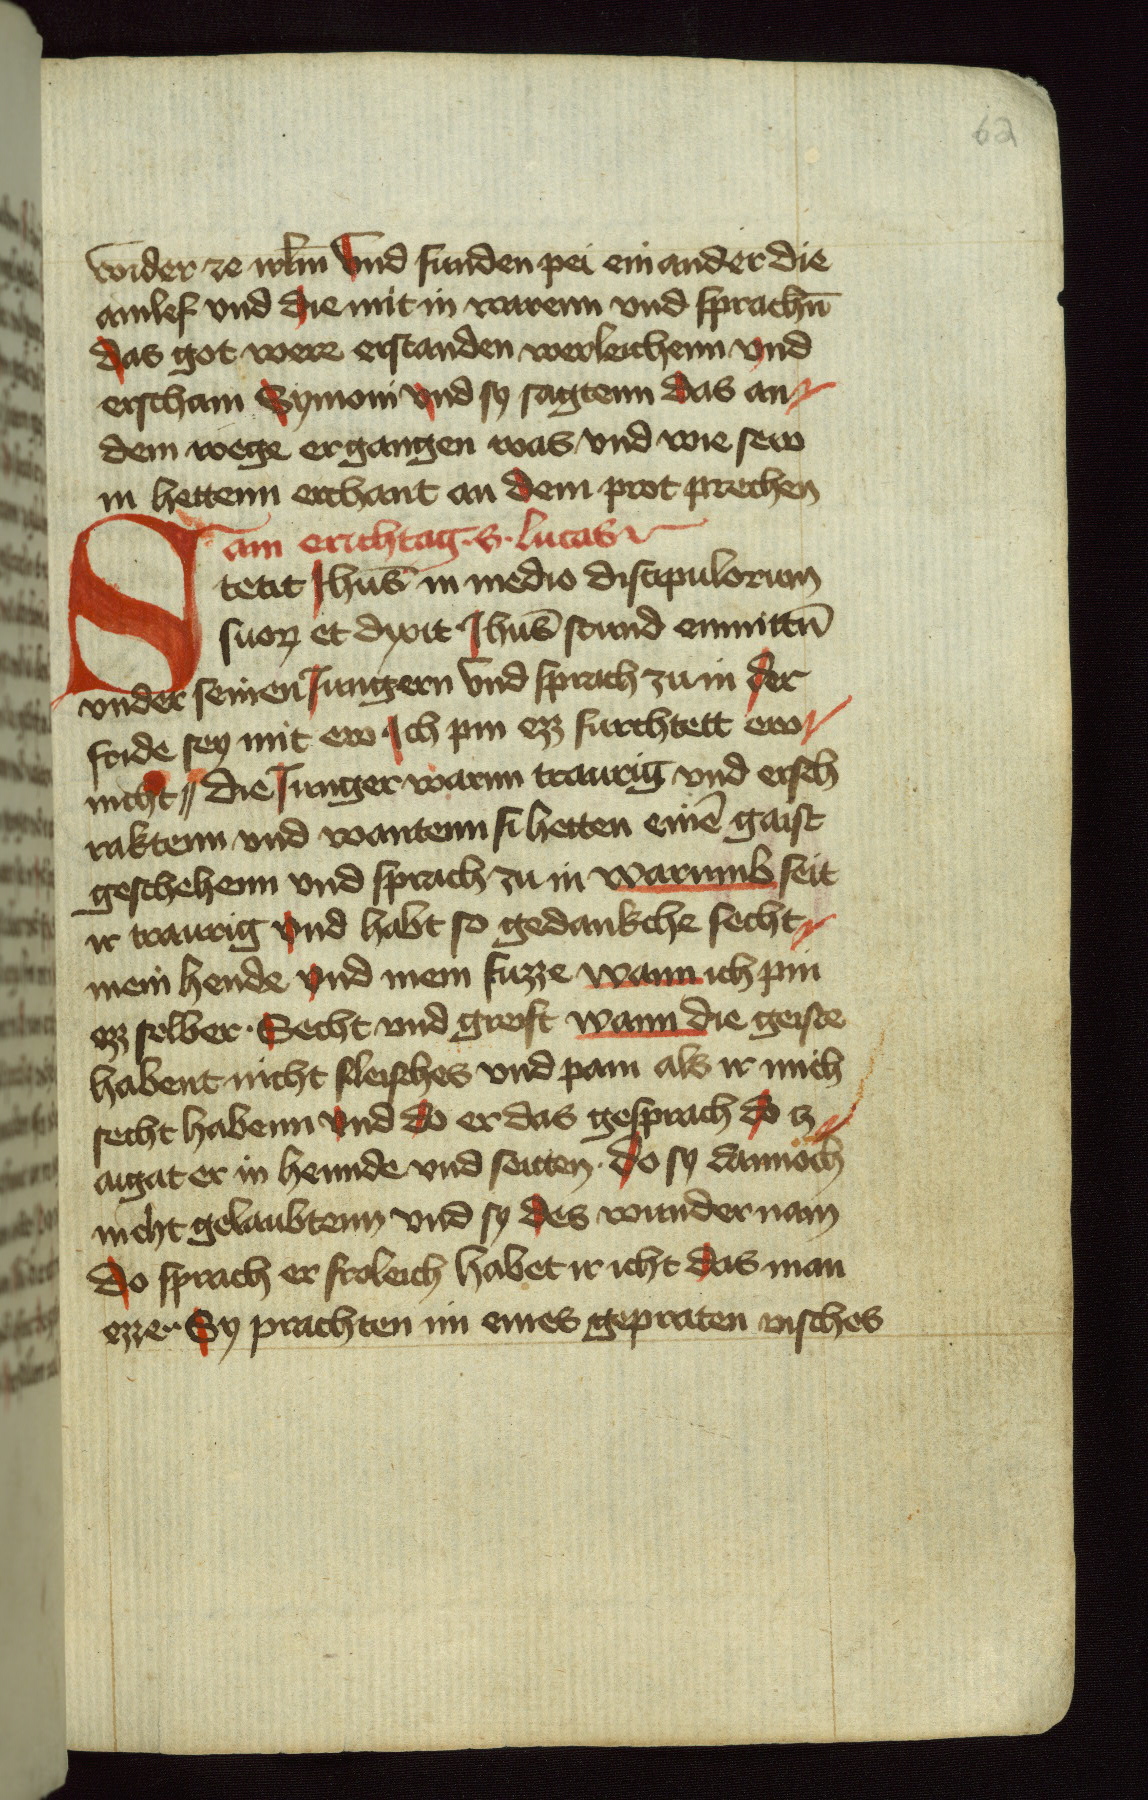 62
wider ze irl̄m Vnd funden pei ein ander die
ainlef vnd die mit in warenn vnd sprachn̄
das got were erstanden werleichenn vnd
erscham Symoni vnd sy sagtenn das an
dem wege ergangen was vnd wie sew
in hettenn erchant an dem prot prechen
am erichtag · S · lucas
Stetit Jhūs in medio discipulorum
suoꝝ et dyxit Jhūs stund enmittn̄
vnder seinen Jungern Vnd sprach zu in der
fride sey mit ew Ich pin ezz furchtett ew
nicht die Junger warnn traurig vnd ersch
raktenn vnd wantenn si hetten einē gaist
geschehenn vnd sprach zu in warumb seit
ir traurig vnd habt so gedankche secht
mein hende vnd mein fuzze wann ich pin
ezz selber · Secht vnd greift wann die geiste
habent nicht fleisches vnd pain als ir mich
secht habenn vnd do er das gesprach do cz
aigat er in hennde vnd seitten · do sy dannoch
nicht gelaubtenn vnd sy des wunder nam
Do sprach er froleich habet ir icht das man
ezze · Sy prachten im eines gepraten visches